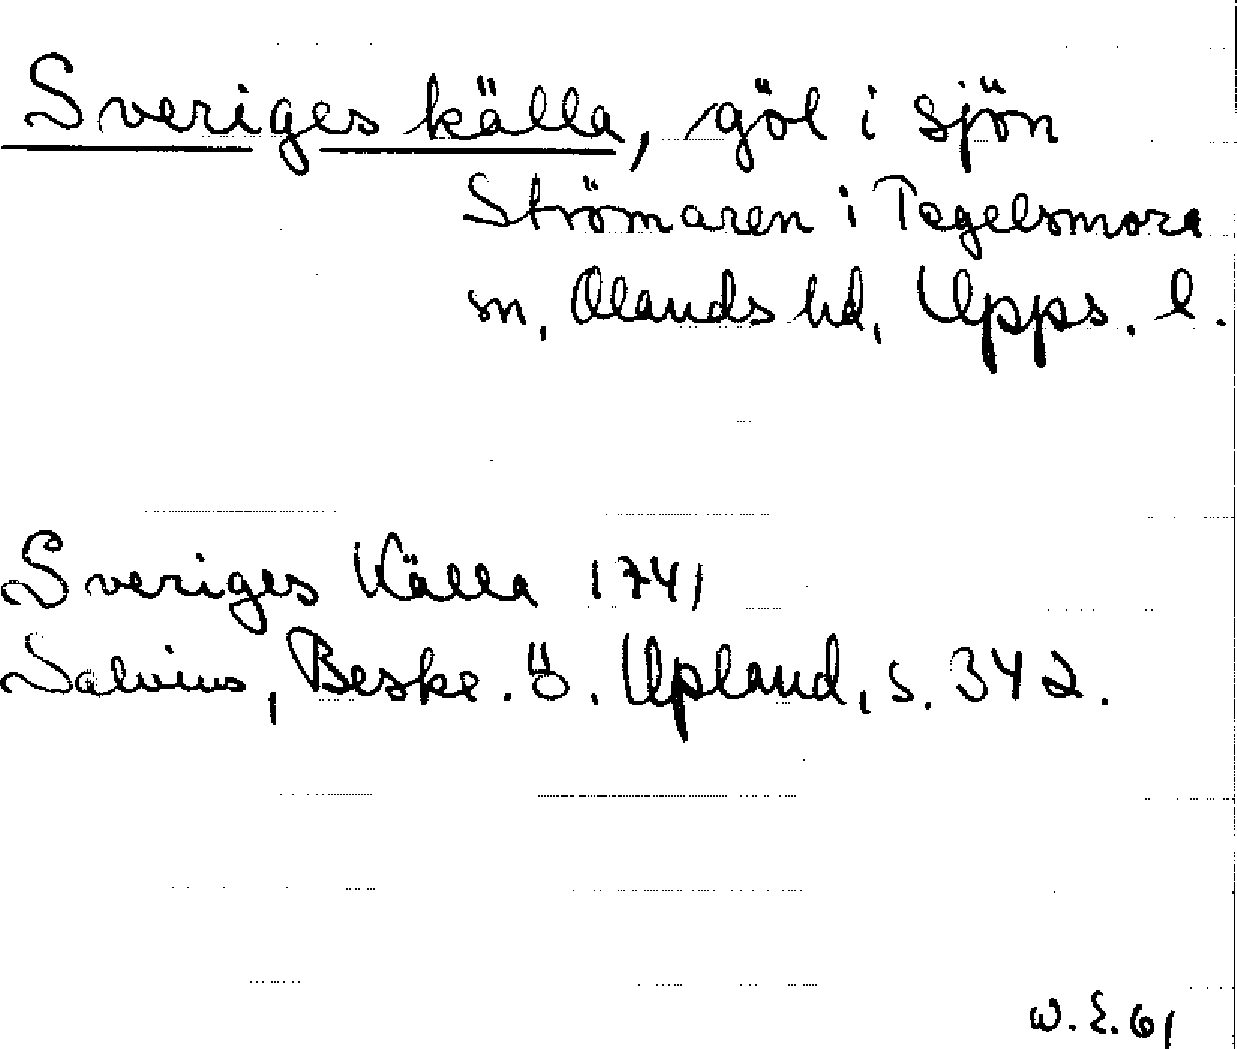 Sveriges källa, göl i sjön
Strömaren i Tegelsmora
sn, Olands hd, Upps. l.
Sveriges Källa 1741
Salvius, Beskr. ö. Upland, s. 342.
W. E. 61